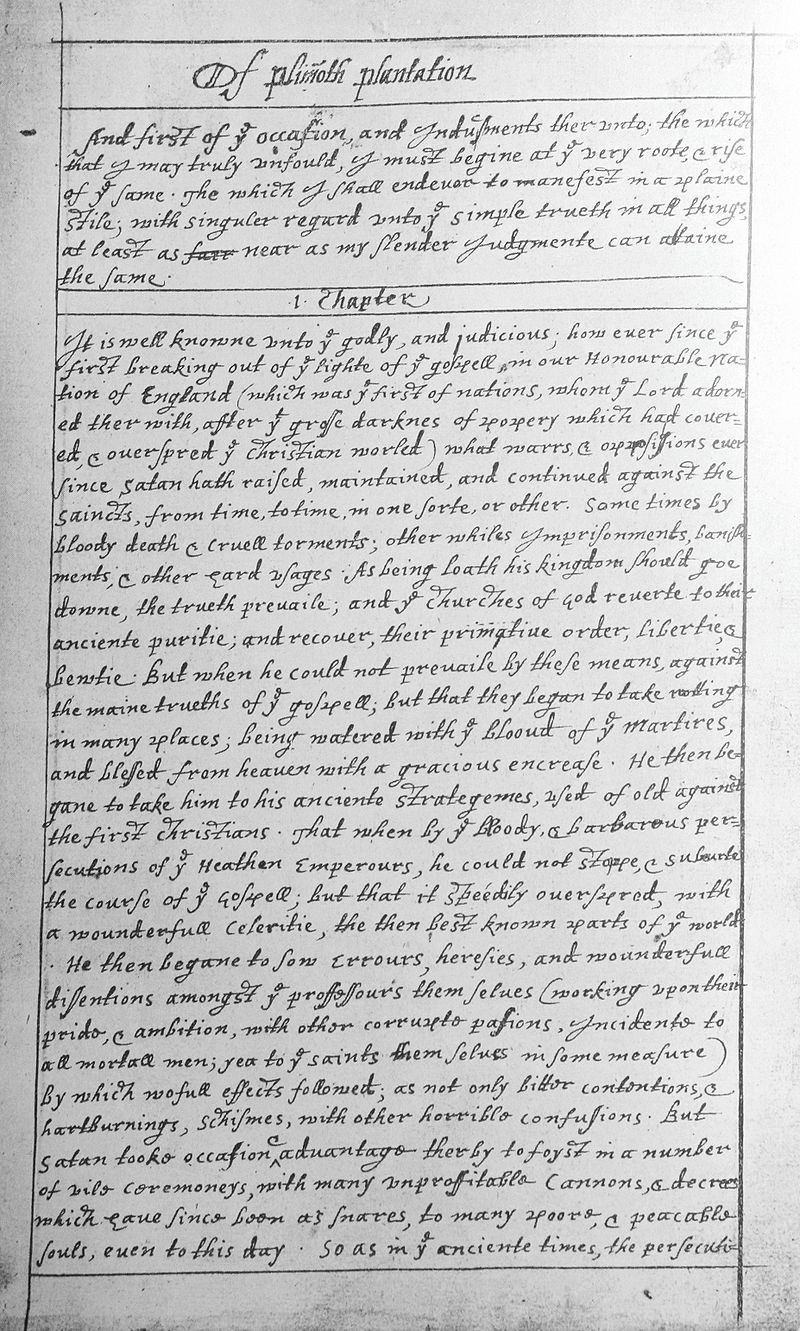 Of plimoth plantation
And first of yͤ occasion, and Indusments ther unto; the which
that I may truly unfould, I must begine at yͤ very roote, & rise
of yͤ same. The which I shall endevor to manefest in a plaine
stile; with singuler regard unto yͤ simple trueth in all things,
at least as farr near as my slender Judgmente can attaine
the same.
.1. Chapter
It is well knowne unto yͤ godly, and judicious; how ever since yͤ
first breaking out of yͤ lighte of yͤ gospell, in our Honourable Na-
tion of England (which was yͤ first of nations, whom yͤ Lord adorn-
ed ther with, after yͤ grose darknes of popery which had cover-
ed, & overspred yͤ christian world) what warrs, & oppossisions ever
since Satan hath raised, maintained, and continued against the
saincts, from time, to time, in one sorte, or other. Some times by
bloody death & cruell torments; other whiles Imprisonments, banish-
ments, & other hard usages. As being loath his kingdom should goe
downe, the trueth prevaile; and yͤ churches of God reverte to their
anciente puritie; and recover, their primative order, libertie, &
bewtie. But when he could not prevaile by these means, against
the maine trueths of yͤ gospell; but that they began to take rotting
in many places; being watered with yͤ blooud of yͤ Martires,
and blessed from heaven with a gracious encrease. He then be-
gane to take him to his anciente strategemes, used of old against
the first christians. That when by yͤ bloody, & barbarous per-
secutions of yͤ Heathen Emperours, he could not stoppe, & subverte
the course of yͤ Gospell; but that it speedily overspred, with
a wounderfull Celeritie, the then best known parts of yͤ world.
. He then begane to sow Errours, heresies, and wounderfull
dissentions amongst yͤ proffessours them selves (working upon their
pride, & ambition, with other corrupte passions, Incidente to
all mortall men; yea to yͤ saints them selves in some measure)
by which wofull effects followed; as not only bitter contentions, &
hartburnings, schismes, with other horrible confusions. But
Satan tooke occasion & advantage therby to foyst in a number
of vile ceremoneys, with many unproffitable Cannons, & decrees
which have since been as snares, to many poore, & peacable
souls, even to this day. So as in yͤ anciente times, the persecuti-